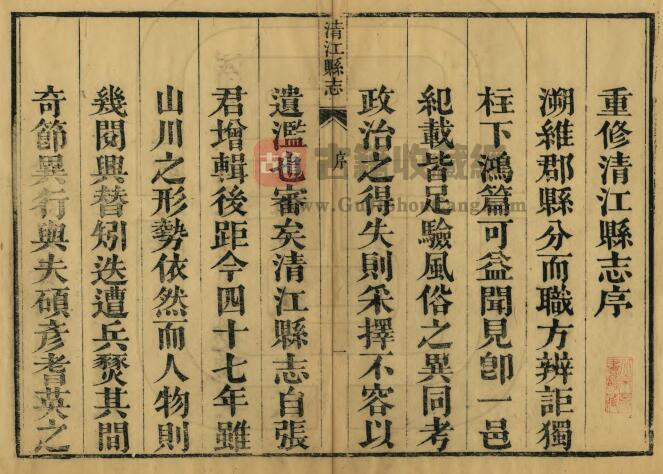 重修清江縣志序
溯維郡縣分而職方辨詎獨
柱下鴻篇可益聞見卽一邑
紀載皆足驗風俗之異同考
政治之得失則采擇不容以
清江縣志
序
一
遺濫也審矣清江縣志自張
君增輯後距今四十七年雖
山川之形勢依然而人物則
幾閱興替矧迭遭兵燹其間
奇節異行與夫碩彥耆英之
古籍收藏網